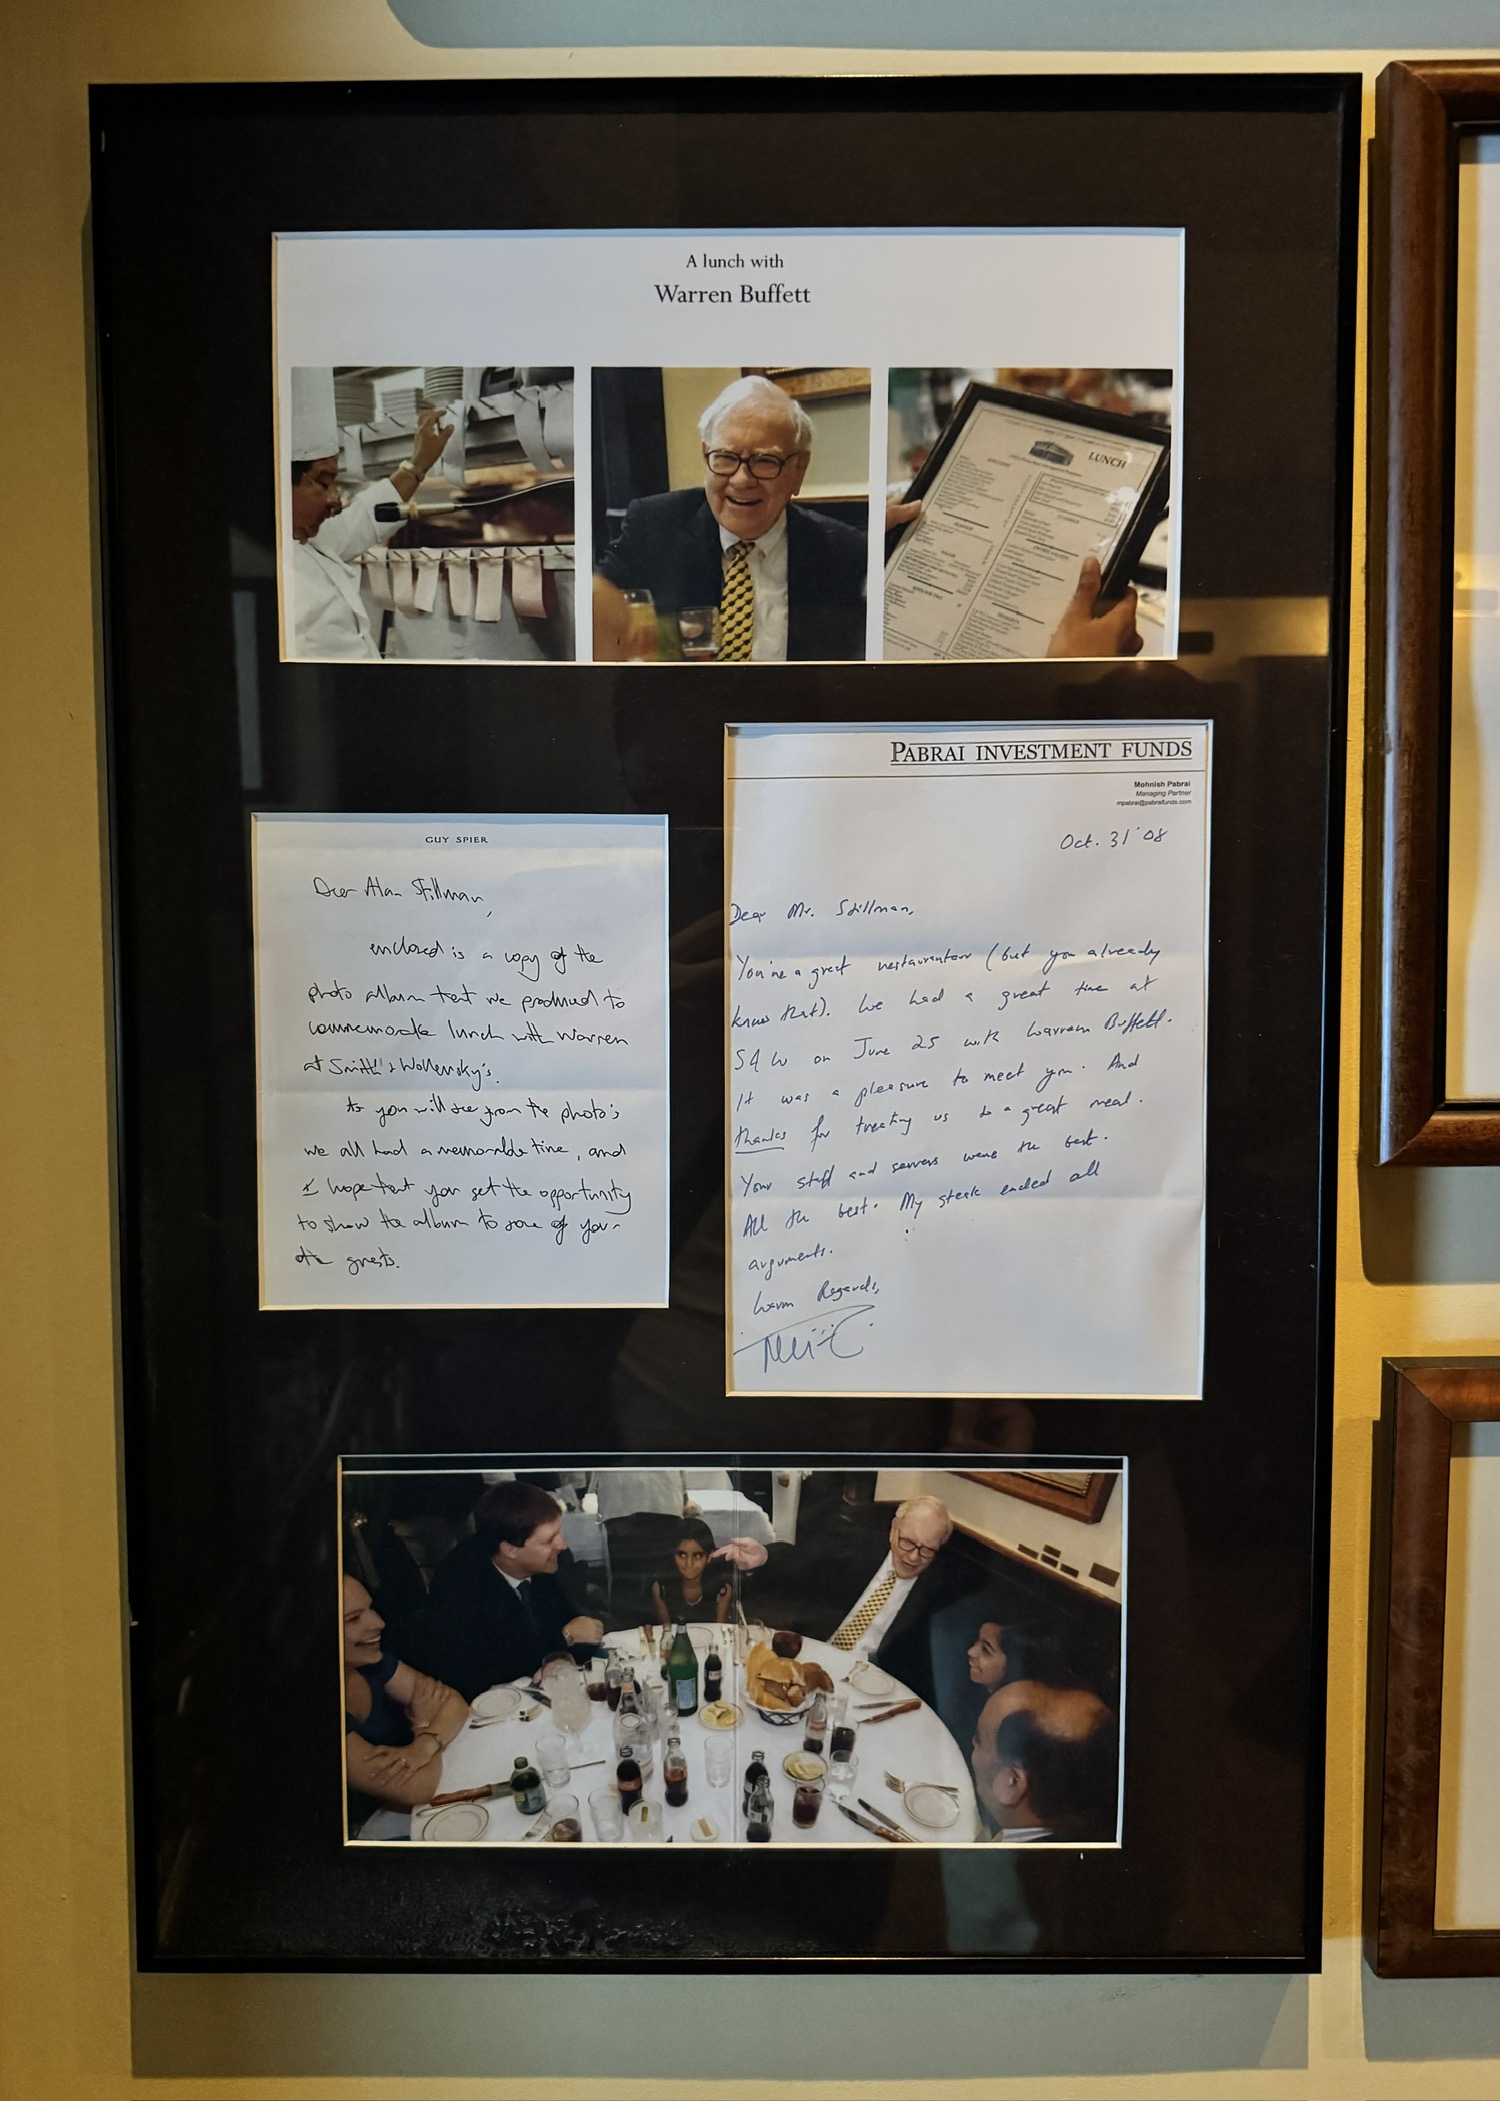 A lunch with
Warren Buffett
LUNCH
GUY SPIER
Dear Alan Stillman,
enclosed is a copy of the
photo album that we produced to
commemorate lunch with Warren
at Smith & Wollensky's.
As you will see from the photo's
we all had a memorable time, and
I hope that you get the opportunity
to show the album to some of your
guests.
PABRAI INVESTMENT FUNDS
Mohnish Pabrai
Managing Partner
mpabrai@pabraifunds.com
Oct. 31 '08
Dear Mr. Stillman,
You're a great restaurateur (but you already
know that). We had a great time at
S&W on June 25 with Warren Buffett.
It was a pleasure to meet you. And
thanks for treating us to a great meal.
Your staff and servers were the best.
All the best. My steak ended all
arguments.
Warm Regards,